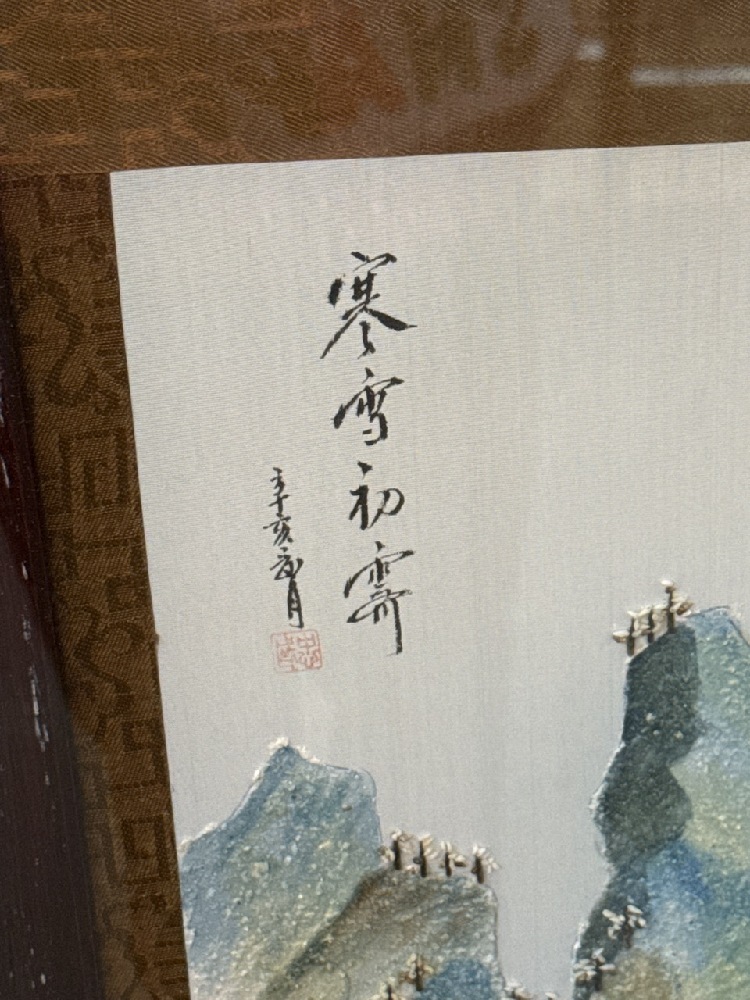 寒雪初霽
辛亥月